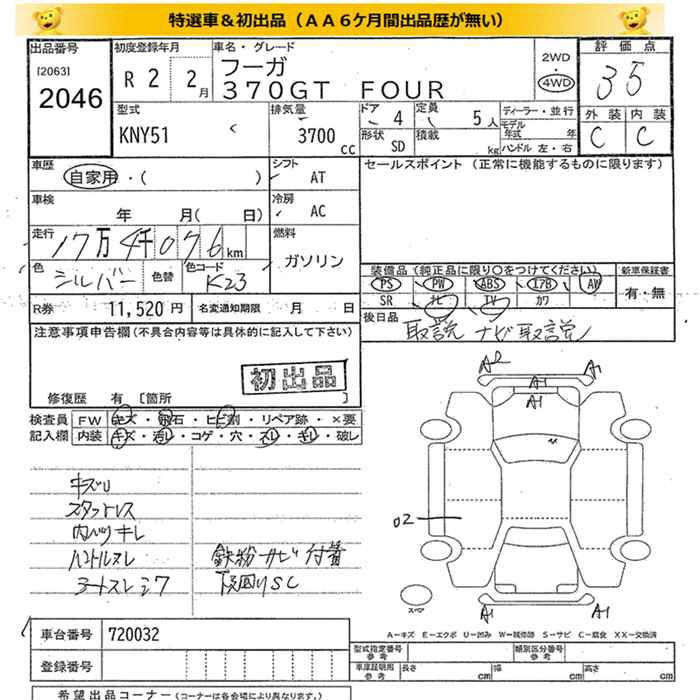 特選車＆初出品（ＡＡ６ケ月間出品歴が無い）
出品番号
[2063]
2046
初度登録年月
R 2 2月
車名・グレード
フーガ
３７０ＧＴ　ＦＯＵＲ
2WD
4WD
評価点
35
外装 内装
C C
型式
KNY51
排気量
3700 cc
ドア 4
形状 SD
定員 5人
積載 kg
ディーラー・並行
モデル年式 年
ハンドル 左・右
車歴
自家用・（ ）
シフト
AT
セールスポイント（正常に機能するものに限ります）
車検
年 月（ 日）
冷房
AC
走行
17万4千076km
燃料
ガソリン
色
シルバー
色替
色コード
K23
装備品（純正品に限り○をつけてください）
PS PW ABS エアB AW
SR ナビ TV カワ
新車保証書
有・無
R券 11,520円
名変通知期限 月 日
後日品
取説 ナビ取説
注意事項申告欄（不具合内容等は具体的に記入して下さい）
初出品
修復歴 有 [箇所 ]
検査員記入欄
FW キズ・飛石・ヒビ割・リペア跡・×要
内装 キズ・汚レ・コゲ・穴・スレ・キレ・破レ
キズU
スタットレス
内ハツリキレ
ハンドルスレ
シートスレシワ
鉄粉サビ付着
下回りSC
A2 A1
A1
A1
02
スペア
A1 A1
A－キズ E－エクボ U－凹み W－補修跡 S－サビ C－腐食 XX－交換済
車台番号 720032
登録番号
型式指定番号 参考
類別区分番号 参考
車庫証明用 参考
長さ cm 幅 cm 高さ cm
希望出品コーナー（コーナーは各会場により異なります。）